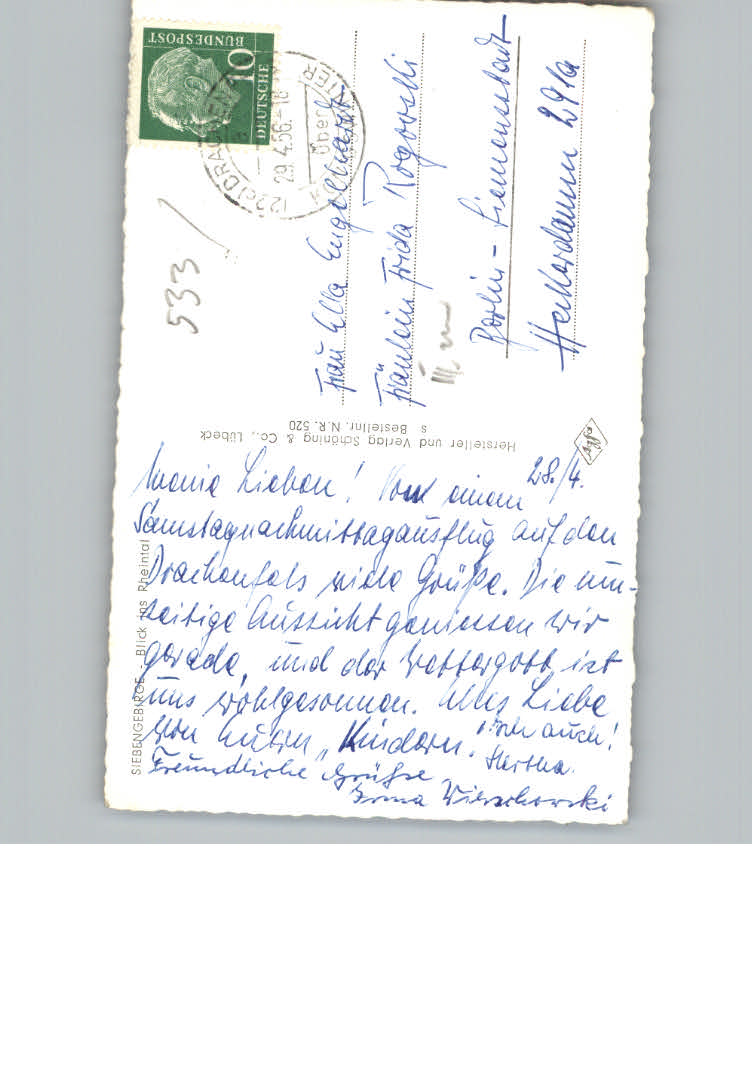 28./4.
Meine Lieben! Von einem
Samstagnachmittagausflug auf den
Drachenfels viele Grüße. Die um-
seitige Aussicht geniessen wir
gerade, und der Wettergott ist
uns wohlgesonnen. Alles Liebe
von Euren "Kindern". Ich auch!
Hertha.
Freundliche Grüße
Irma Wierschowski
SIEBENGEBIRGE - Blick ins Rheintal
Hersteller und Verlag Schöning & Co., Lübeck
s Bestellnr. N.R. 520
DEUTSCHE
BUNDESPOST
10
(22c) DRACHEN
29.4.56.-18
über
533
Frau Ella Engelhardt
Fräulein Frida Rogowski
Berlin-Siemensstadt
Heckerdamm 291a